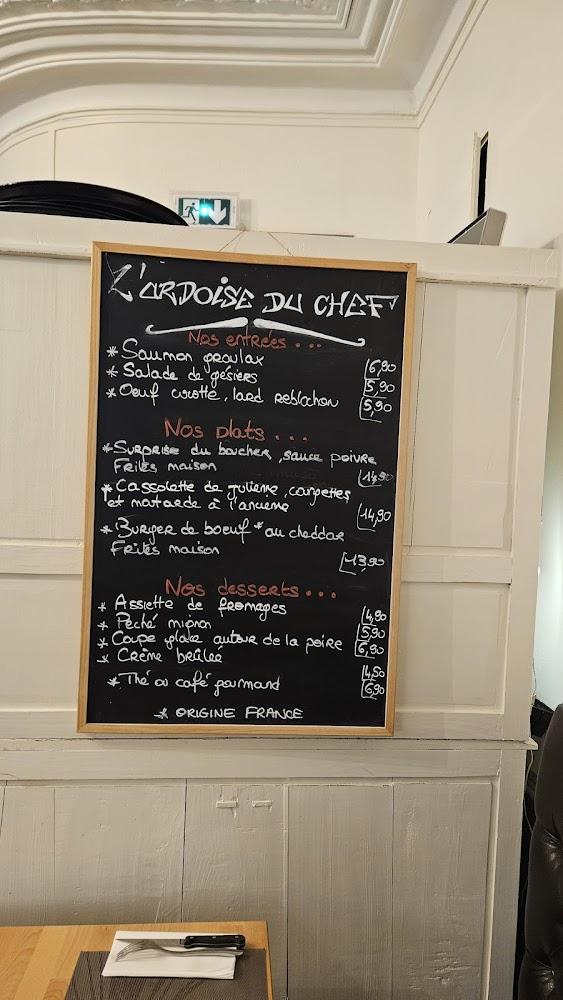 L'ARDOISE DU CHEF
Nos entrées...
* Saumon gravlax
6,90
* Salade de gésiers
5,90
* Oeuf cocotte, lard reblochon
5,90
Nos plats...
* Surprise du boucher, sauce poivre
Frites maison
14,90
* Cassolette de julienne, courgettes
et moutarde à l'ancienne
14,90
* Burger de boeuf * au cheddar
Frites maison
13,90
Nos desserts...
* Assiette de fromages
4,90
* Péché mignon
5,90
* Coupe glacée autour de la poire
6,90
* Crème brûlée
4,50
* Thé ou café gourmand
6,90
* ORIGINE FRANCE